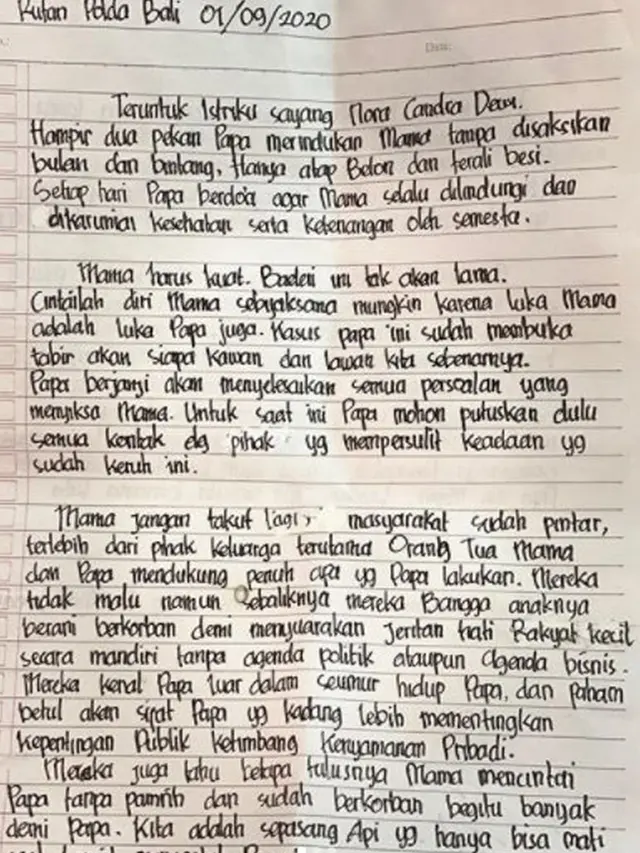 Rutan Polda Bali 01/09/2020
Date:
Teruntuk Istriku sayang Nora Candra Dewi.
Hampir dua pekan Papa merindukan Mama tanpa disaksikan
bulan dan bintang, Hanya atap Beton dan terali besi.
Setiap hari Papa berdo'a agar Mama selalu dilindungi dan
dikaruniai kesehatan serta ketenangan oleh semesta.
Mama harus kuat. Badai ini tak akan lama.
Cintailah diri Mama sebijaksana mungkin karena luka Mama
adalah luka Papa juga. Kasus papa ini sudah membuka
tabir akan siapa kawan dan lawan kita sebenarnya.
Papa berjanji akan menyelesaikan semua persoalan yang
menyiksa Mama. Untuk saat ini Papa mohon putuskan dulu
semua kontak dg "pihak" yg mempersulit keadaan yg
sudah keruh ini.
Mama jangan takut lagi, masyarakat sudah pintar,
terlebih dari pihak keluarga terutama Orang Tua Mama
dan Papa mendukung penuh apa yg Papa lakukan. Mereka
tidak malu namun Sebaliknya mereka Bangga anaknya
berani berkorban demi menyuarakan jeritan hati Rakyat kecil
secara mandiri tanpa agenda politik ataupun Agenda bisnis.
Mereka kenal Papa luar dalam seumur hidup Papa, dan paham
betul akan sifat Papa yg kadang lebih mementingkan
Kepentingan Publik ketimbang Kenyamanan Pribadi.
Mereka juga tahu betapa tulusnya Mama mencintai
Papa tanpa pamrih dan sudah berkorban begitu banyak
demi Papa. Kita adalah sepasang Api yg hanya bisa mati